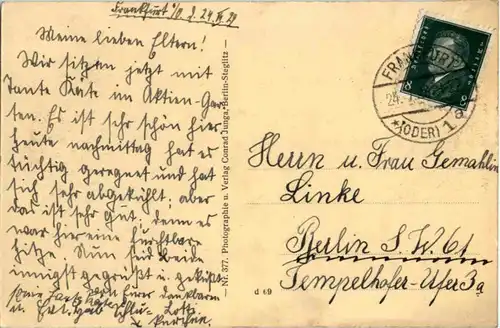 Frankfurt a/O d. 24. VI 29
Meine lieben Eltern!
Wir sitzen jetzt mit
Tante Käte im Aktien-Gar-
ten. Es ist sehr schön hier,
heute nachmittag hat es
tüchtig geregnet und hat
sich sehr abgekühlt, aber
das ist sehr gut, denn es
war hier eine furchtbare
Hitze. Nun seid beide
innigst gegrüßt u. geküßt
von Eurer dankbaren
u.
Nr. 377. Photographie u. Verlag Conrad Junga, Berlin-Steglitz
d 69
FRANKFURT
24.
*(ODER) 1 a
8 8
Herrn u. Frau Gemahlin
Linke
Berlin S.W. 61
Tempelhofer-Ufer 3a